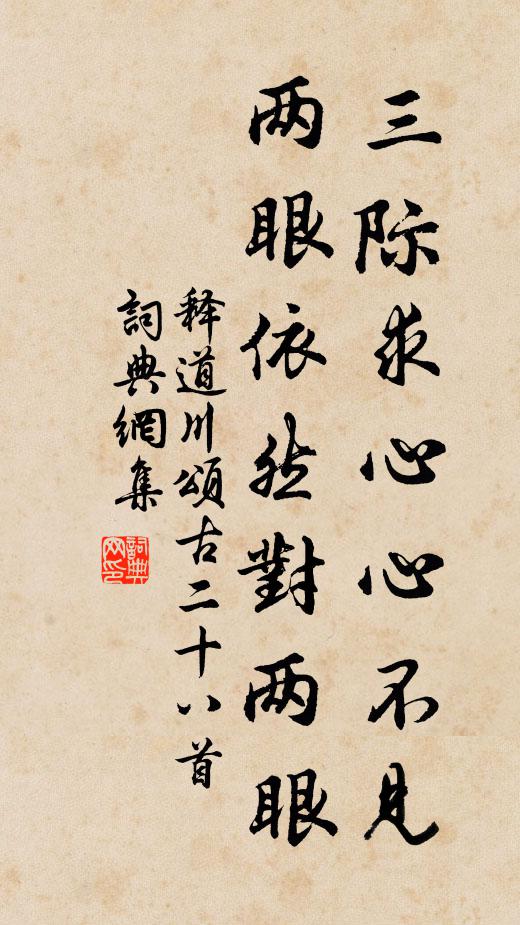 三际求心心不見
两眼依然對两眼
释道川頌古二十八首
詞典網集
詞典网印